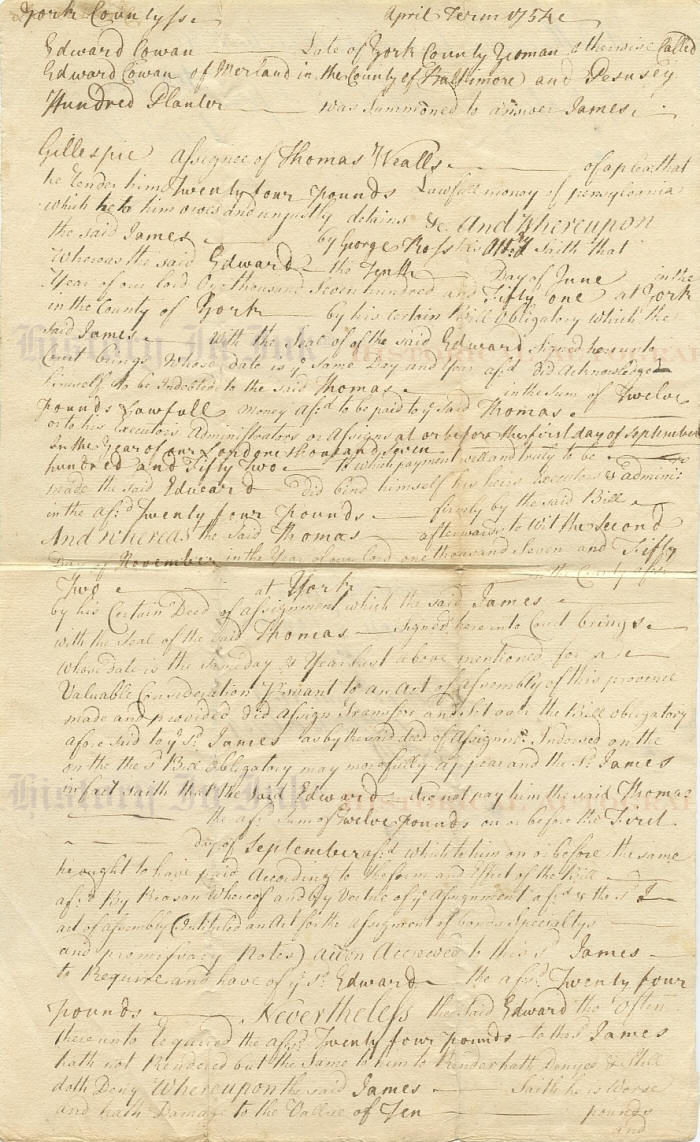 York County ss. April Term 1754
Edward Cowan Late of York County Yeoman otherwise Called
Edward Cowan of Merland in the County of Baltimore and
Hundred Planter was Summoned to answer James
Gillespie assignee of Thomas of a plea that
he Render him Twenty four Pounds Lawfull money of pensylvania
which he to him owes and unjustly detains &c. And Whereupon
the said James by George Ross his Atty Saith that
Whereas the said Edward the Tenth Day of June in the
Year of our lord One thousand Seven hundred and Fifty one at York
in the County of York by his certain Bill Obligatory which the
said James with the Seal of of the said Edward signed here unto
Court brings Whose date is ye Same Day and Year afsd did Acknowledge
himself to be Indebted to the said Thomas in the Sum of Twelve
pounds Lawfull money afsd to be paid to ye said Thomas
or to his Executors Administrators or Assigns at or before the first day of September
In the Year of our Lord one thousand Seven
hundred and Fifty Two To which payment well and truly to be
made the said Edward did bind himself his heirs Executors & admin:
in the afsd Twenty four Pounds firmly by the said Bill
And whereas the Said Thomas afterwards to Wit the Second
Day of November in the Year of our lord one thousand Seven and Fifty
Two at York in the County afsd
by his Certain Deed of assignment which the said James
with the Seal of the said Thomas signed here into Court brings
Whose date is the same day & Year last above mentioned for a
Valuable Consideration Pursuant to an Act of Assembly of this province
made and provided did Assign Transfer and Set over the Bill obligatory
afore said to ye sd. James as by the said deed of Assignmt. Indorsed on the
on the the sd Bill Obligatory may more fully appear and the sd. James
in fact saith that the said Edward did not pay him the said Thomas
the afsd Sum of Twelve pounds on or before the First
day of September afsd which to him on or before the same
he ought to have paid According to the form and Effect of the Bill
afsd By Reason Whereof and by Vertue of ye Assignment afsd & the sd
act of assembly (Entitled an Act for the assigment of bonds Specialtys
and promissary Notes) action Accrewed to this sd James
to Require and have of ye sd. Edward the afsd. Twenty four
pounds. Nevertheless the said Edward tho' Often
thereunto Required the afsd Twenty four pounds to the sd James
hath not Rendered but the Same to him to Render hath Denyed & Still
doth Deny Whereupon the said James Saith he is Worse
and hath Damage to the Vallue of Ten pounds
and
History In Ink
History In Ink